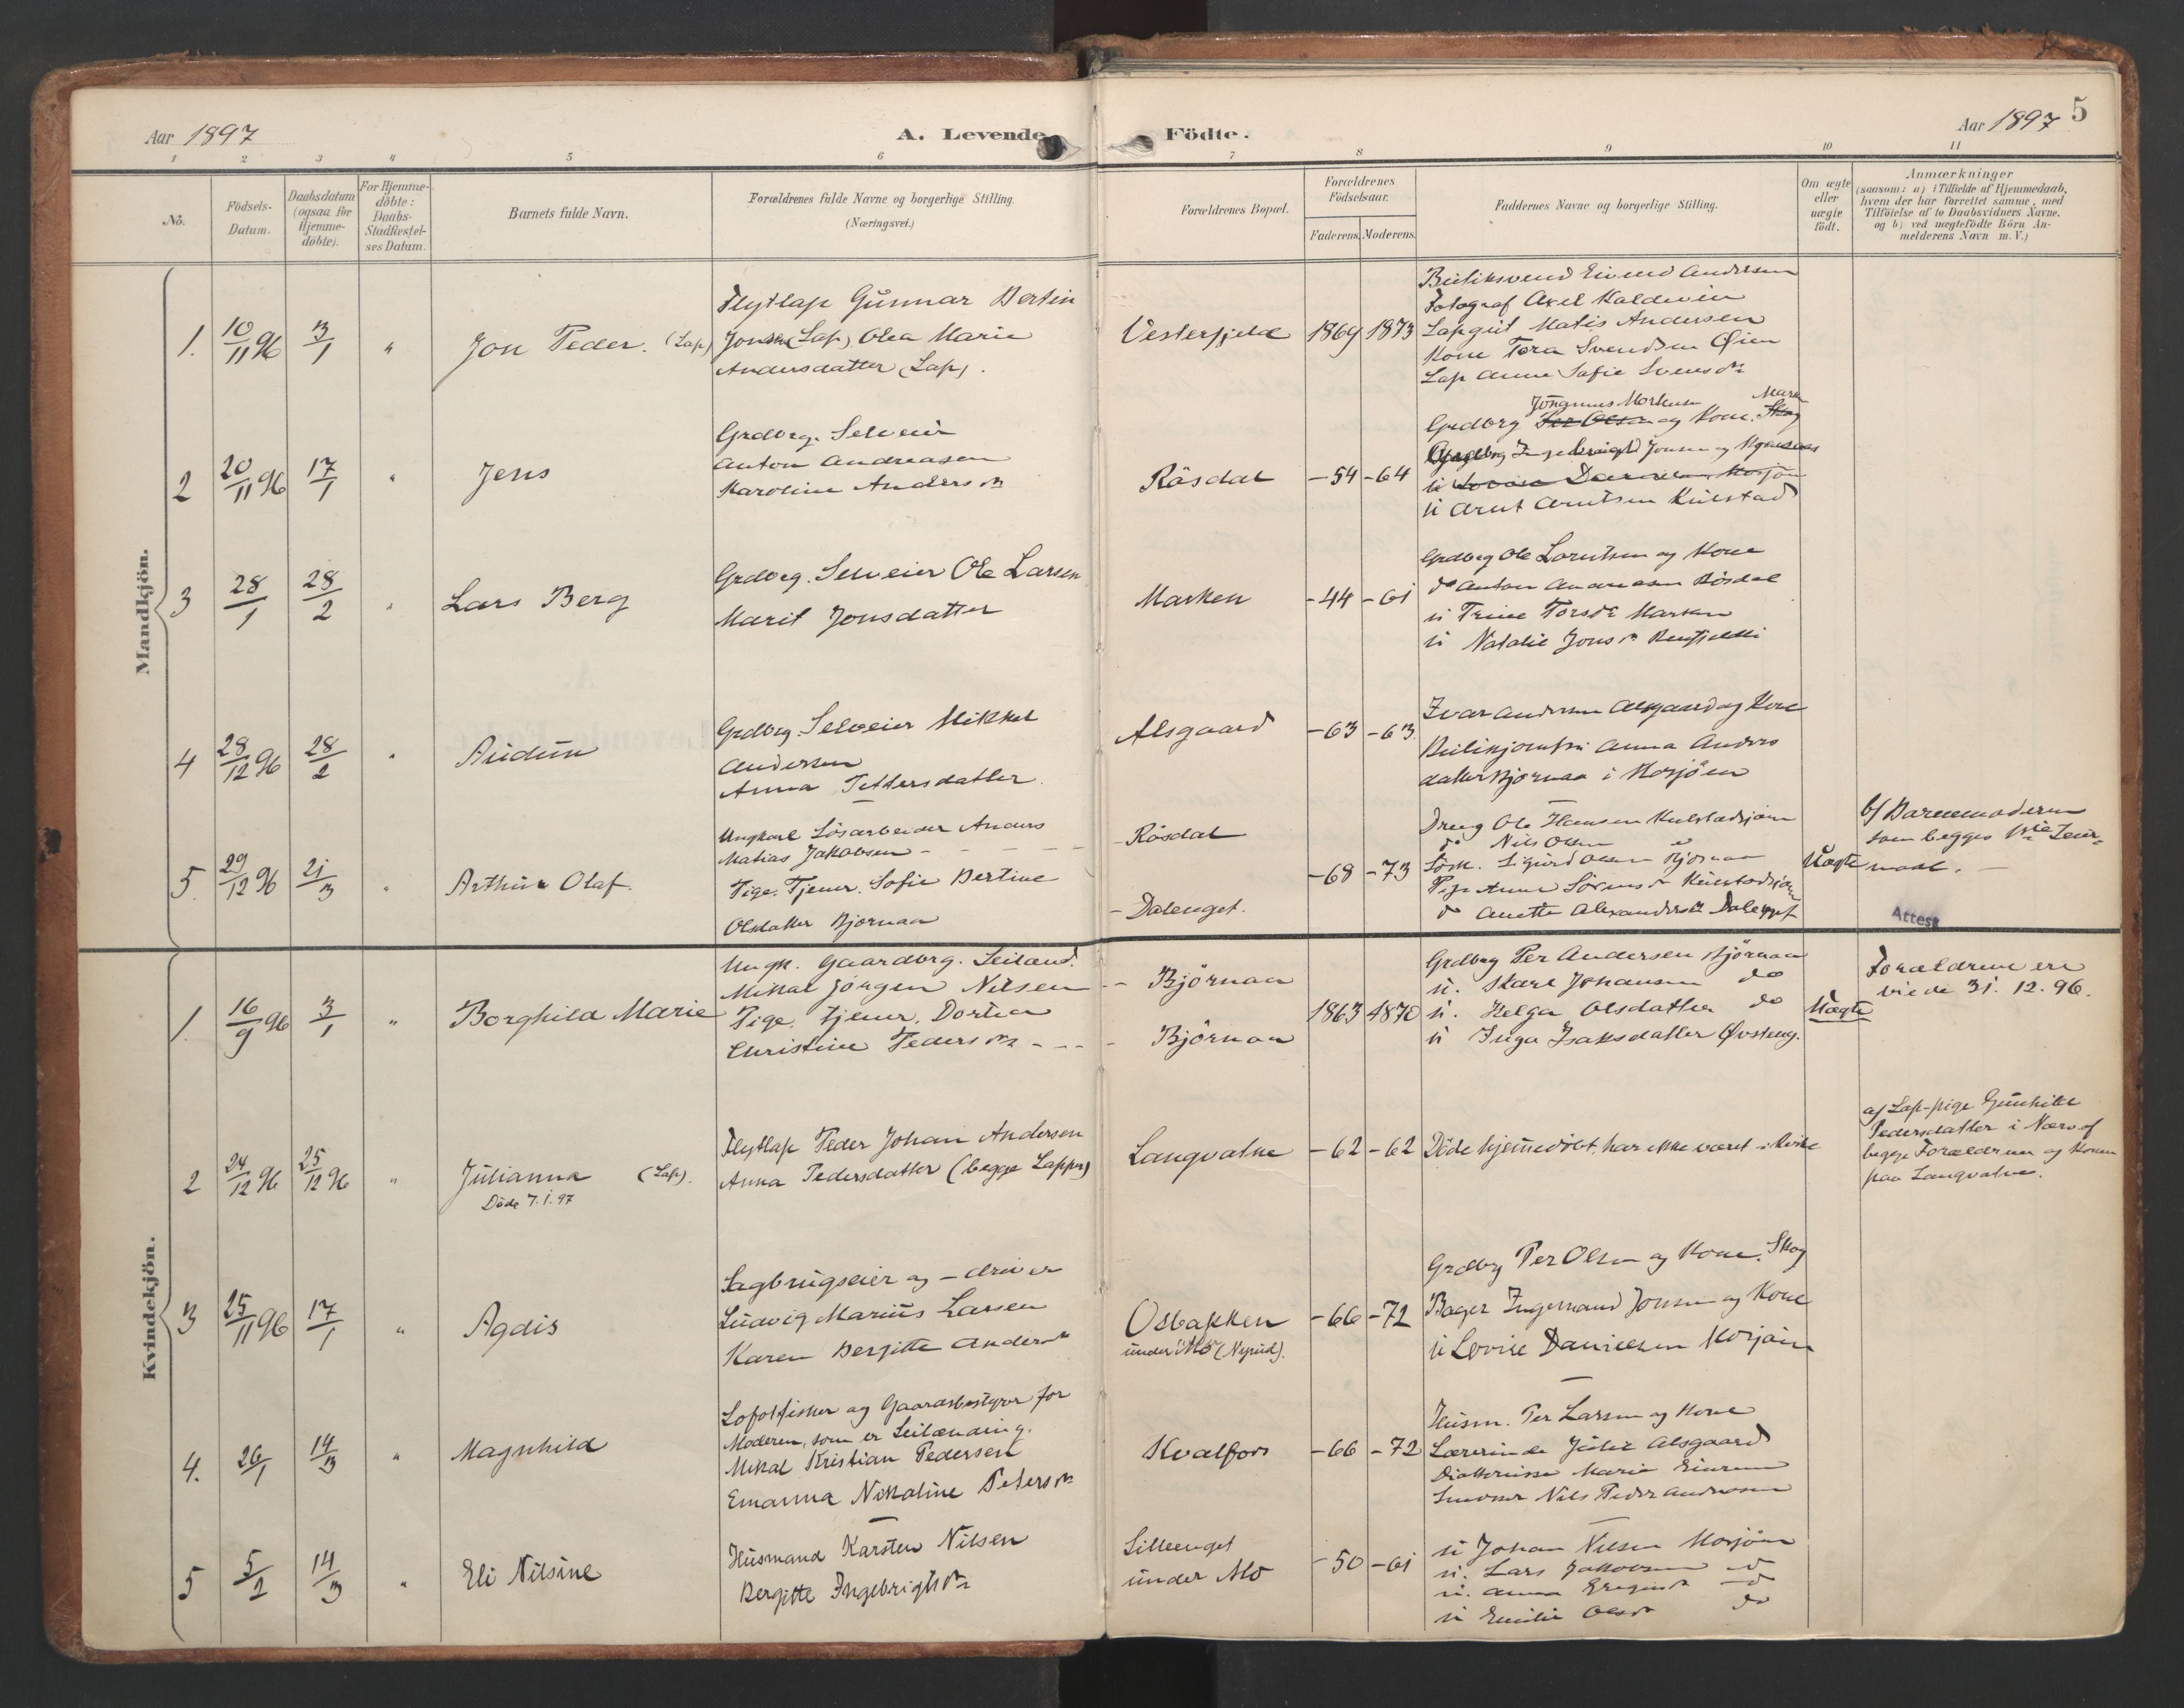 Aar 1897
A. Levende Födte.
Aar 1897
5
1 2 3 4 5 6 7 8 9 10 11
No.
Födsels-Datum.
Daabsdatum (ogsaa for Hjemme-döbte).
For Hjemme-döbte: Daabs-Stadfæstel-ses Datum.
Barnets fulde Navn.
Forældrenes fulde Navne og borgerlige Stilling.
(Næringsvei.)
Forældrenes Bopæl.
Forældrenes Födselsaar.
Faderens. Moderens.
Faddernes Navne og borgerlige Stilling.
Om ægte eller uægte födt.
Anmærkninger
(saasom: a) i Tilfælde af Hjemmedaab,
hvem der har forrettet samme, med
Tilföielse af to Daabsvidners Navne.
og b) ved uægtefödte Börn An-
melderens Navn m. V.)
Mandkjön.
1. 10/11 96 3/1 " Jon Peder. (Lap)
Flytlap Gunnar Bertin
Jonsen (Lap), Olea Marie
Andersdatter (Lap).
Vesterfjeld 1869 1873
Butiksvend Eivind Andersen
Fotograf Axel Kaldevin
Lapgut Matis Andersen
Kone Tora Svendsen Øien
Lap Anne Sofie Svensdtr
2 20/11 96 17/1 " Jens
Grdbrg. Selveier
Anton Andreasen
Karoline Andersdtr
Rösdal -54 -64
Johannes Mortensen Marken
Grdbrg Per Olsen og Kone. Skog
Ingebrigt Jonsen
Lovise Danielsen Mosjöen
" Arnt Arntsen Kulstad
3 28/1 28/2 " Lars Berg
Grdbrg. Selveier Ole Larsen
Marit Jonsdatter
Marken -44 -61
Grdbrg Ole Larntsen og Kone
do Anton Andreasen Rösdal
" Trine Torsdtr Marken
" Natalie Jonsdtr
4 28/12 96 28/2 " Audun
Grdbrg. Selveier Mikkel
Andersen
Anna Pettersdatter.
Alsgaard -63 -63.
Ivar Andersen Alsgaard og Kone
Butikjomfru Anna Anders
datter Bjørnaa i Mosjöen
5. 29/12 96 21/3 " Arthur Olaf.
Ungkarl Lösarbeider Anders
Matias Jakobsen
Pige. Tjener. Sofie Bertine
Olsdatter Bjornaa
Rösdal
Dalenget.
-68 -73
Dreng Ole Hansen Kulstadsjøen
do Nils Olsen "
Lösk. Sigurd Olsen Bjørnaa
Pige Anne Sörensdtr Kulstadsjøen
do Anette Alexandersdtr Dalenget
Uægte
b/ Barnemoderen
som begges 1ste Leier-
maal.
Attest
Kvindekjön.
1. 16/9 96 3/1 " Borghild Marie
Ungk. Gaardbrg. Leilænd.
Mikal Jörgen Nilsen
Pige. Tjener. Dortea
Christine Pedersdtr
Björnaa
Björnaa
1863 1870
Grdbrg Per Andersen Bjørnaa
". Skarl Johansen do
". Helga Olsdatter do
" Inga Isaksdatter Øvsteng.
Uægte
Forældrene ere
viede 31. 12. 96.
2 24/12 96 25/12 96 " Julianna (Lap).
Döde 7.1.97
Flytlap Peder Johan Andersen
Anna Pedersdatter (begge Lapper)
Langvatne -62 -62
Döde hjemmedöbt, har ikke været i Kirke
af Lap-pige Gunhild
Pedersdatter i Nærv. af
begge Forældrene og Konen
paa Langvatne.
3 25/11 96 17/1 " Agdis
Sagbrugseier og -driver
Ludvig Marius Larsen
Karen Bergitte Andersdtr
Osbakken
under Mo (Nyrud).
-66 -72
Grdbrg Per Olsen og Kone. Skog
Bager Ingemand Jonsen og Kone
" Lovise Danielsen Mosjöen
4. 26/1 14/3 " Magnhild
Lofotfisker og Gaardsbestyrer for
Moderen, som er Leilænding.
Mikal Kristian Pedersen
Emanna Nikoline Petersdtr
Kvalfors -66 -72
Husm. Per Larsen og Kone
Lærerinde Julie Alsgaard
Diakonisse Marie Einrem
Nils Peder Andreasen
5 5/2 14/3 " Eli Nilsine
Husmand Karsten Nilsen
Bergitte Ingebrigtsdtr
Lilleenget
under Mo
-50 -61
" Johan Nilsen Mosjöen
". Lars Jakobsen do
". Anna do
" Emilie Olsdtr do